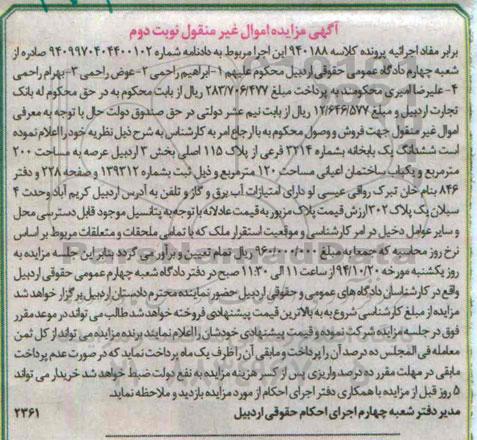 آگهی مزایده اموال غیر منقول نوبت دوم
برابر مفاد اجرائیه پرونده کلاسه ۹۴۰۱۸۸ این اجرا مربوط به دادنامه شماره ۹۴۰۹۹۷۰۴۰۴۴۰۰۱۰۲ صادره از
شعبه چهارم دادگاه عمومی حقوقی اردبیل محکوم علیهم ۱-ابراهیم راحمی ۲-عوض راحمی ۳-بهرام راحمی
۴- علیرضا امیری محکومند به پرداخت مبلغ ۲۸۳/۷۰۶/۴۷۷ ریال از بابت محکوم به در حق محکوم له بانک
تجارت اردبیل و مبلغ ۱۲/۶۴۶/۵۷۷ ریال از بابت نیم عشر دولتی در حق صندوق دولت حال با توجه به معرفی
اموال غیر منقول جهت فروش و وصول محکوم به با ارجاع امر به کارشناس به شرح ذیل نظریه خود را اعلام نموده
است ششدانگ یک بابخانه بشماره ۳۲۱۴ فرعی از پلاک ۱۱۵ اصلی بخش ۳ اردبیل عرصه به مساحت ۲۰۰
مترمربع و یکباب ساختمان اعیانی مساحت ۱۲۰ مترمربع و ذیل ثبت بشماره ۱۳۹۳۱۲ و صفحه ۲۲۸ و دفتر
۸۴۶ بنام خان تبرک رواقی عیسی لو دارای امتیازات آب برق و گاز و تلفن به آدرس اردبیل کریم آباد وحدت ۴
سبلان یک پلاک ۳۰۲ ارزش قیمت پلاک مزبور به قیمت عادلانه با توجه به پتانسیل موجود قابل دسترسی محل
و سایر عوامل دخیل در امر کارشناسی و موقعیت استقرار ملک که با تمامی ملحقات و متعلقات مربوط بر اساس
نرخ روز محاسبه که جمعا به مبلغ ۹۶۰/۰۰۰/۰۰۰ ریال تمام تعیین و برآورد می گردد بنابر این جلسه مزایده به
روز یکشنبه مورخه ۹۴/۱۰/۲۰ از ساعت ۱۱ الی ۱۱:۳۰ صبح در دفتر دادگاه شعبه چهارم عمومی حقوقی اردبیل
واقع در کارشناسان دادگاه های عمومی و حقوقی اردبیل حضور نماینده محترم دادستان اردبیل برگزار خواهد شد
مزایده از مبلغ کارشناسی شروع به به بالاترین قیمت پیشنهادی فروخته خواهد شد طالب می تواند در موعد مقرر
فوق در جلسه مزایده شرکت نموده و قیمت پیشنهادی خودشان را اعلام نمایند برنده مزایده می تواند از کل ثمن
معامله فی المجلس ده درصد آن را پرداخت و مابقی آن را ظرف یک ماه پرداخت نماید که در صورت عدم پرداخت
مابقی در مهلت مقرر ده درصد واریزی پس از کسر هزینه مزایده به نفع دولت ضبط خواهد شد خریدار می تواند
۵ روز قبل از مزایده با همکاری دفتر اجرای احکام از مورد مزایده بازدید و ملاحظه نماید.
مدیر دفتر شعبه چهارم اجرای احکام حقوقی اردبیل
۲۳۶۱